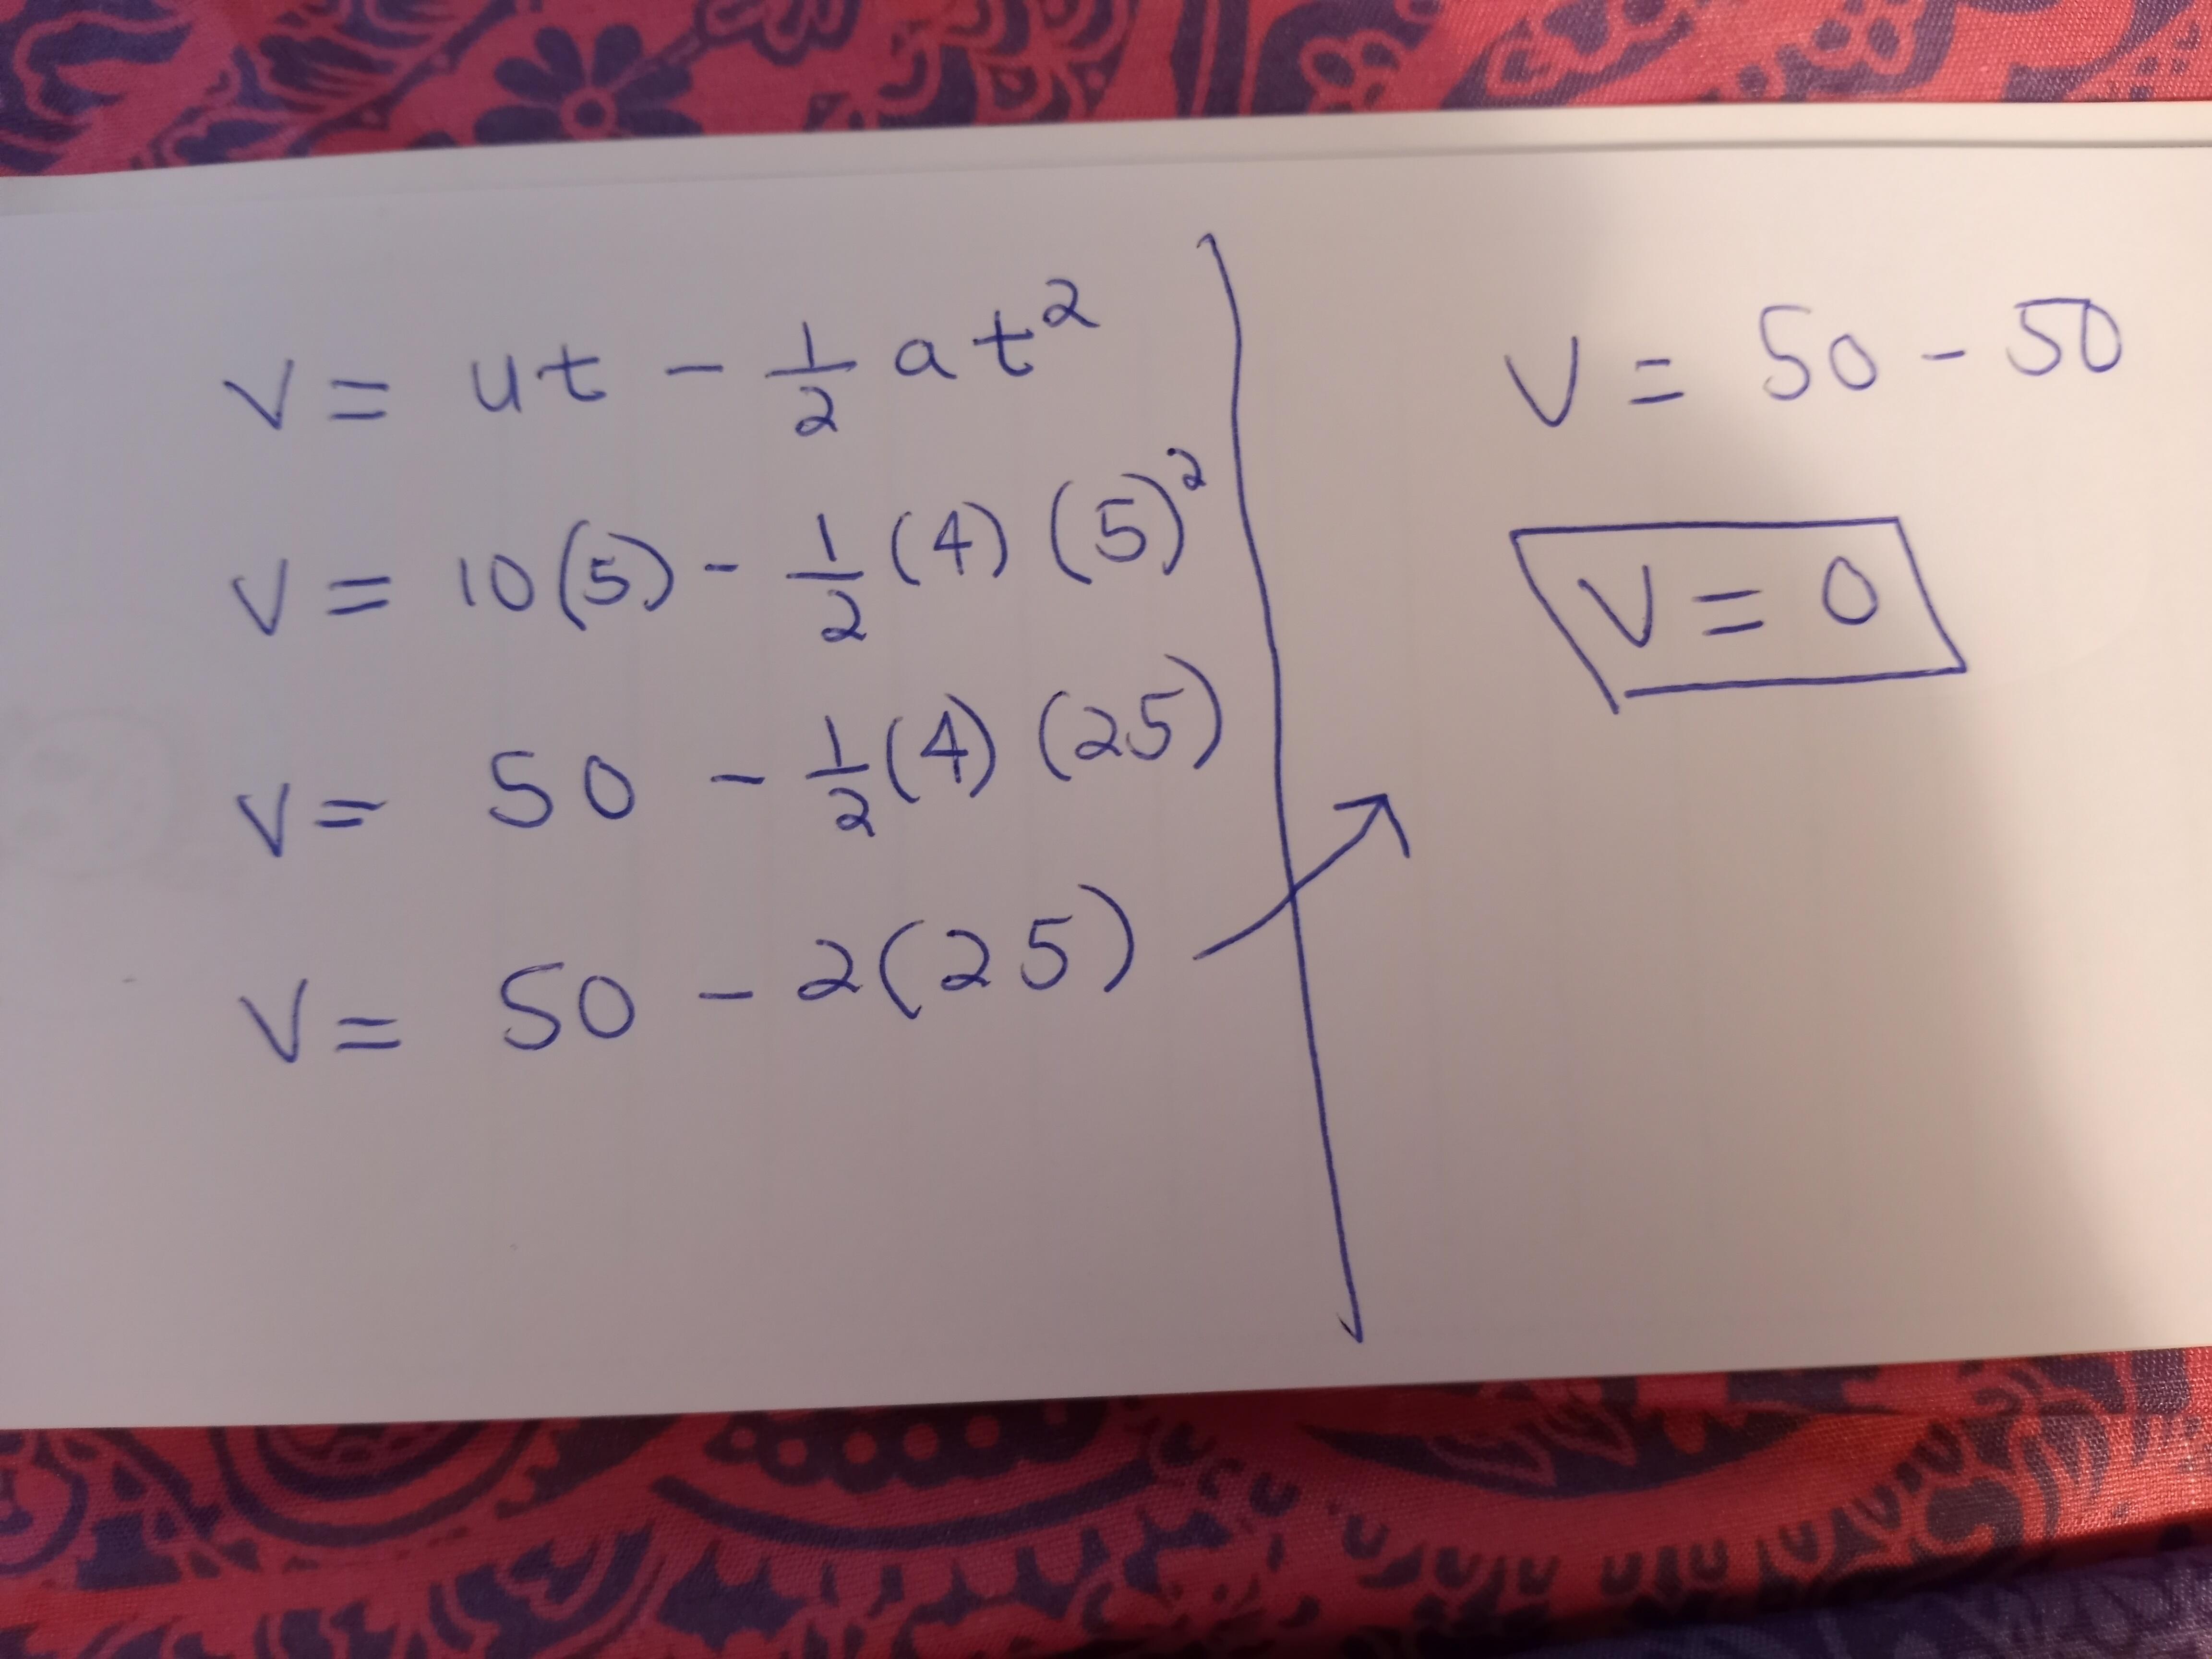 V = ut - 1/2 at²
V = 10(5) - 1/2 (4) (5)²
V = 50 - 1/2 (4) (25)
V = 50 - 2(25)
V = 50 - 50
V = 0